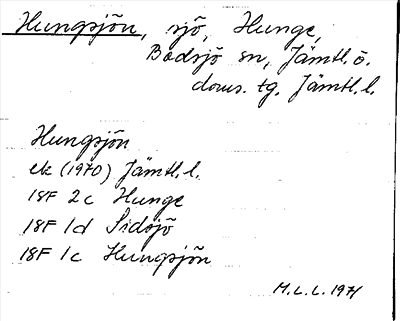 Hungsjön, sjö, Hunge,
Bodsjö sn, Jämtl. ö.
doms. tg, Jämtl. l.
Hungsjön
ek (1970) Jämtl. l.
18F 2c Hunge
18F 1d Sidsjö
18F 1c Hungsjön
M.L.L. 1971